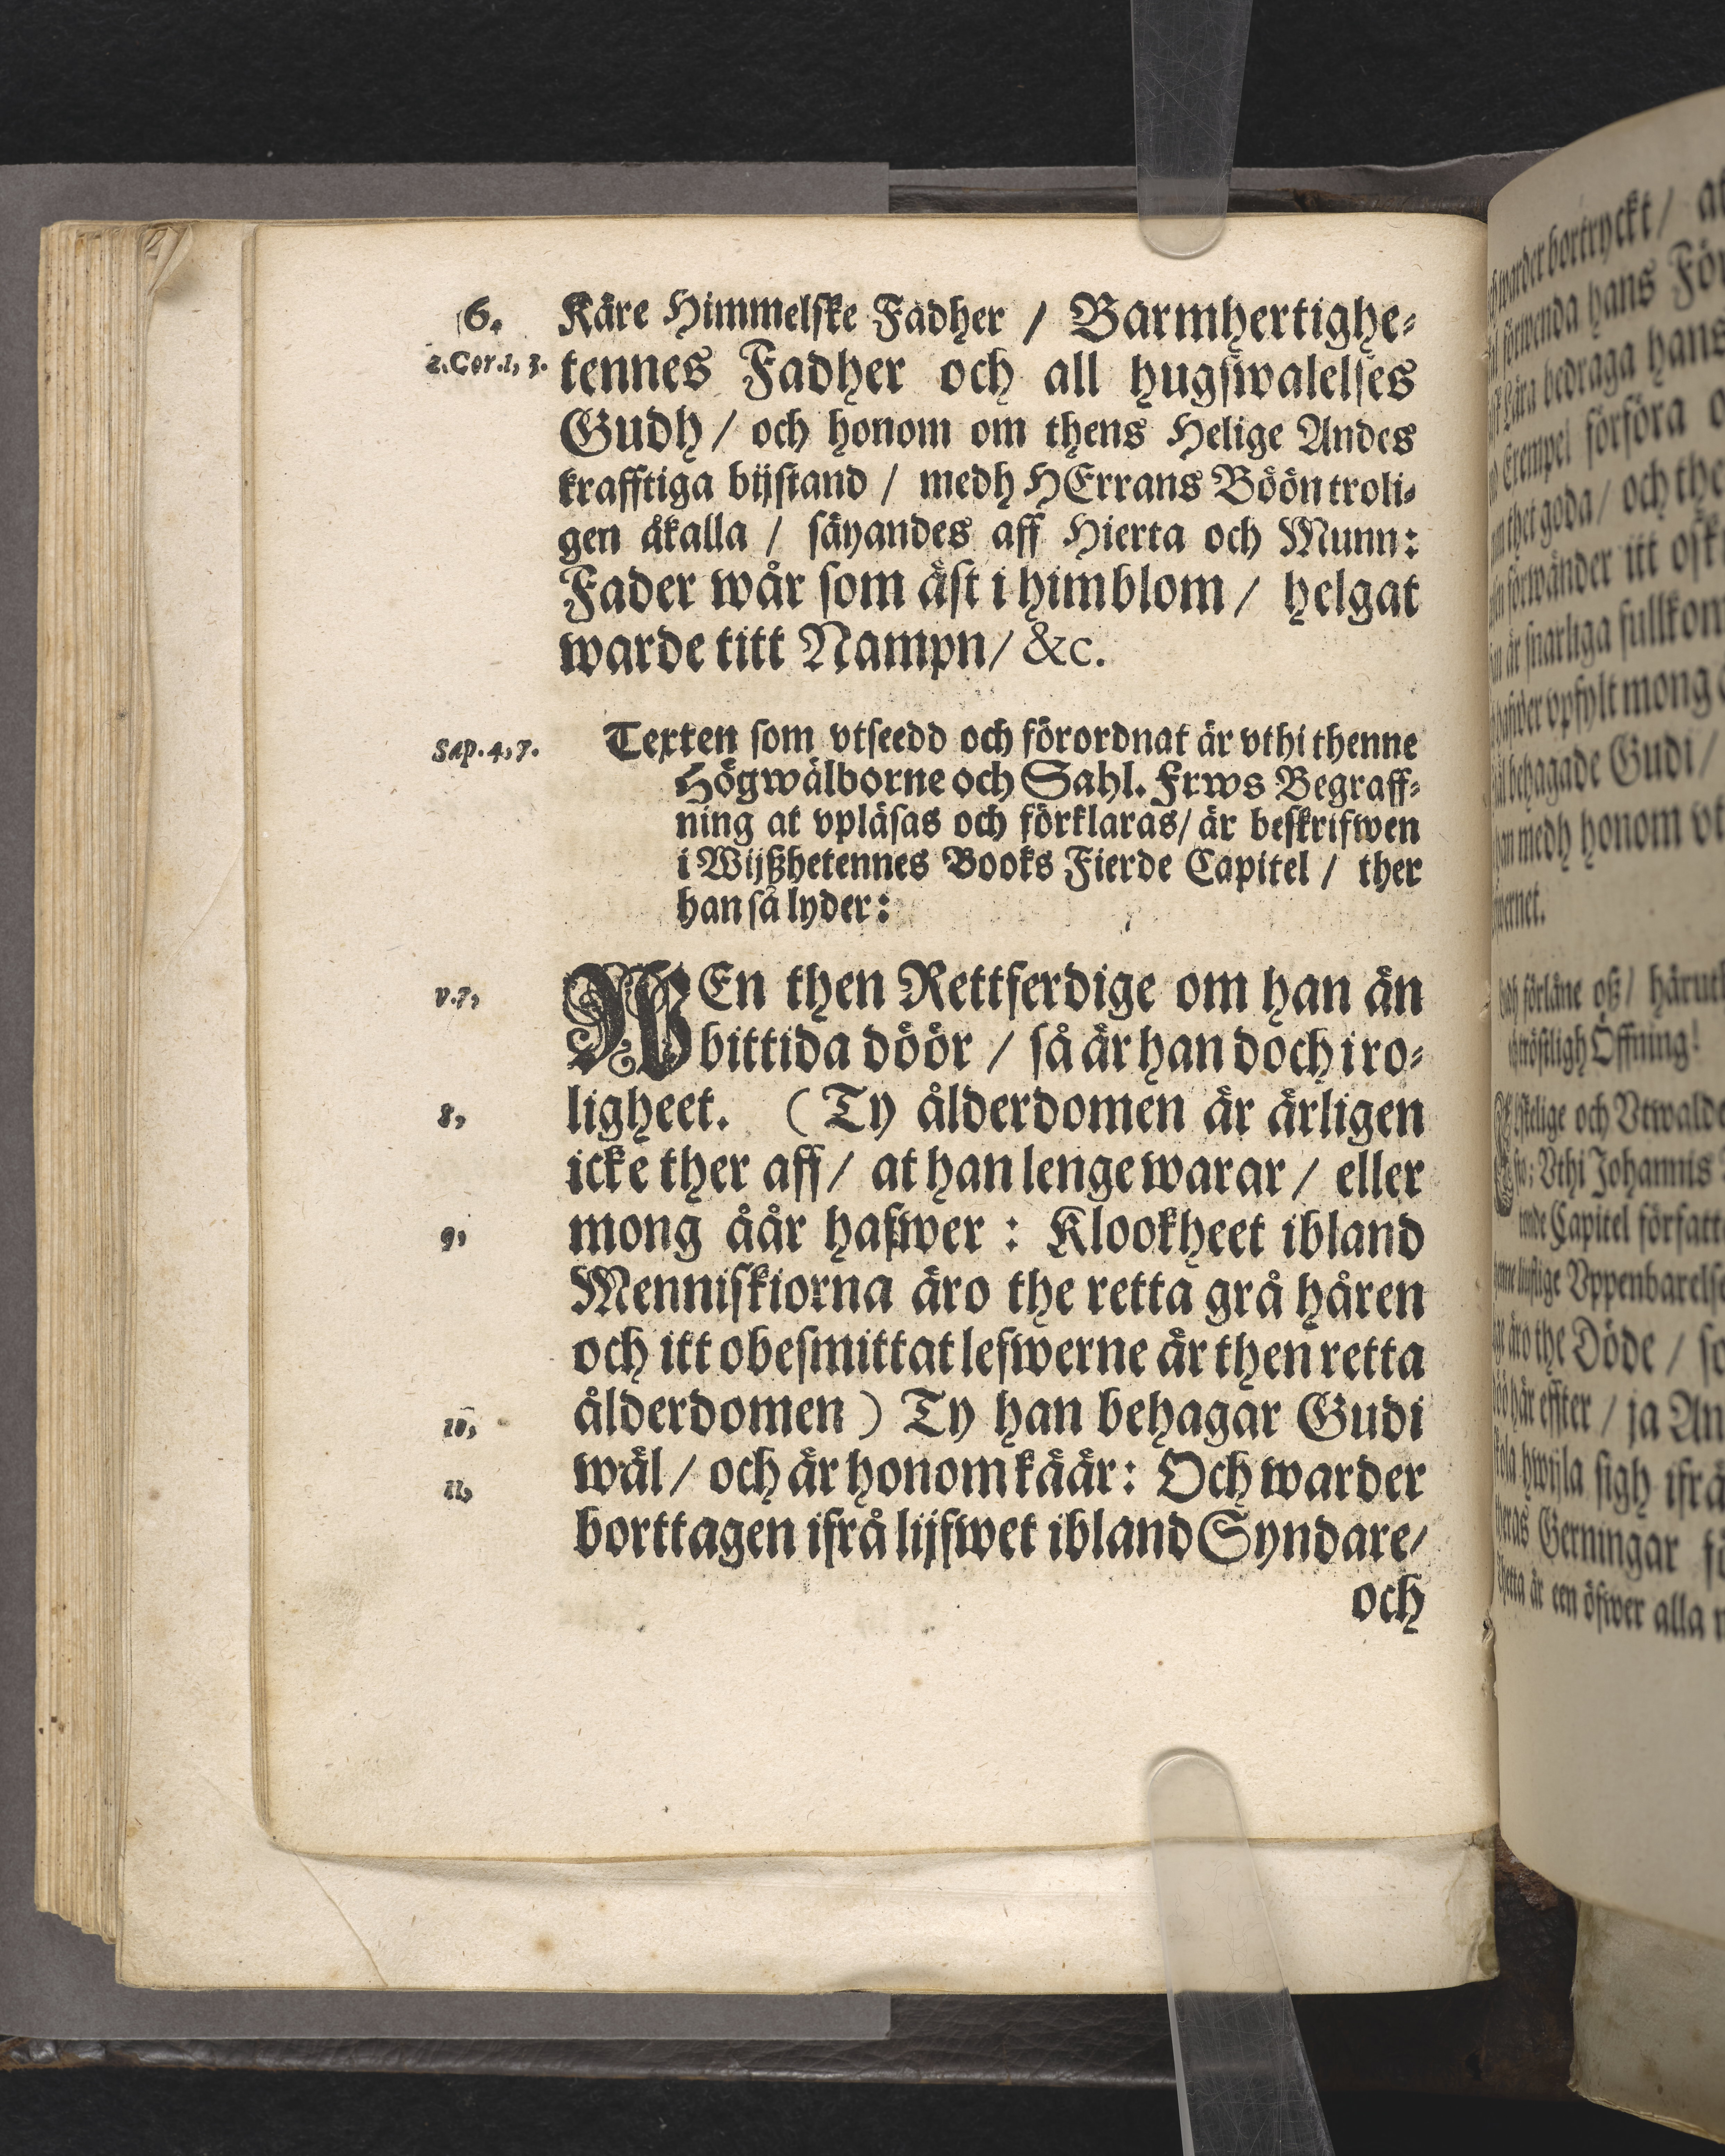 6.
Käre Himmelske Fadher / Barmhertighe-
2. Cor. 1, 3.
tennes Fadher och all hugswalelses
Gudh / och honom om thens Helige Andes
krafftiga bijstand / medh HErrans Böön troli-
gen åkalla / säyandes aff Hierta och Munn:
Fader wår som äst i himblom / helgat
warde titt Nampn / &c.
Sap. 4, 7.
Texten som vtseedd och förordnat är vthi thenne
Högwälborne och Sahl. Frws Begraff-
ning at vpläsas och förklaras / är beskrifwen
i Wijßhetennes Books Fierde Capitel / ther
han så lyder:
v. 7,
MEn then Rettferdige om han än
bittida döör / så är han doch i ro-
8,
ligheet. (Ty ålderdomen är ärligen
icke ther aff / at han lenge warar / eller
9,
mong åår hafwer : Klookheet ibland
Menniskiorna äro the retta grå håren
och itt obesmittat lefwerne är then retta
10,
ålderdomen) Ty han behagar Gudi
11,
wäl / och är honom käär: Och warder
borttagen ifrå lijfwet ibland Syndare /
och
warder bortryckt / at
förwenda hans För
Lära bedraga hans
Exempel förföra o
thet goda / och the
förwänder itt osk
är snarliga fullkom
hafwer vpfylt mong
behagade Gudi /
medh honom vt
förläne oß / härut
tröstligh Öffning!
och Vtwalde
Vthi Johannis
Capitel författ
lustige Vppenbarelse
äro the Döde / so
här effter / ja An
hwijla sigh ifrå
Gerningar fö
Thetta är een öfwer alla